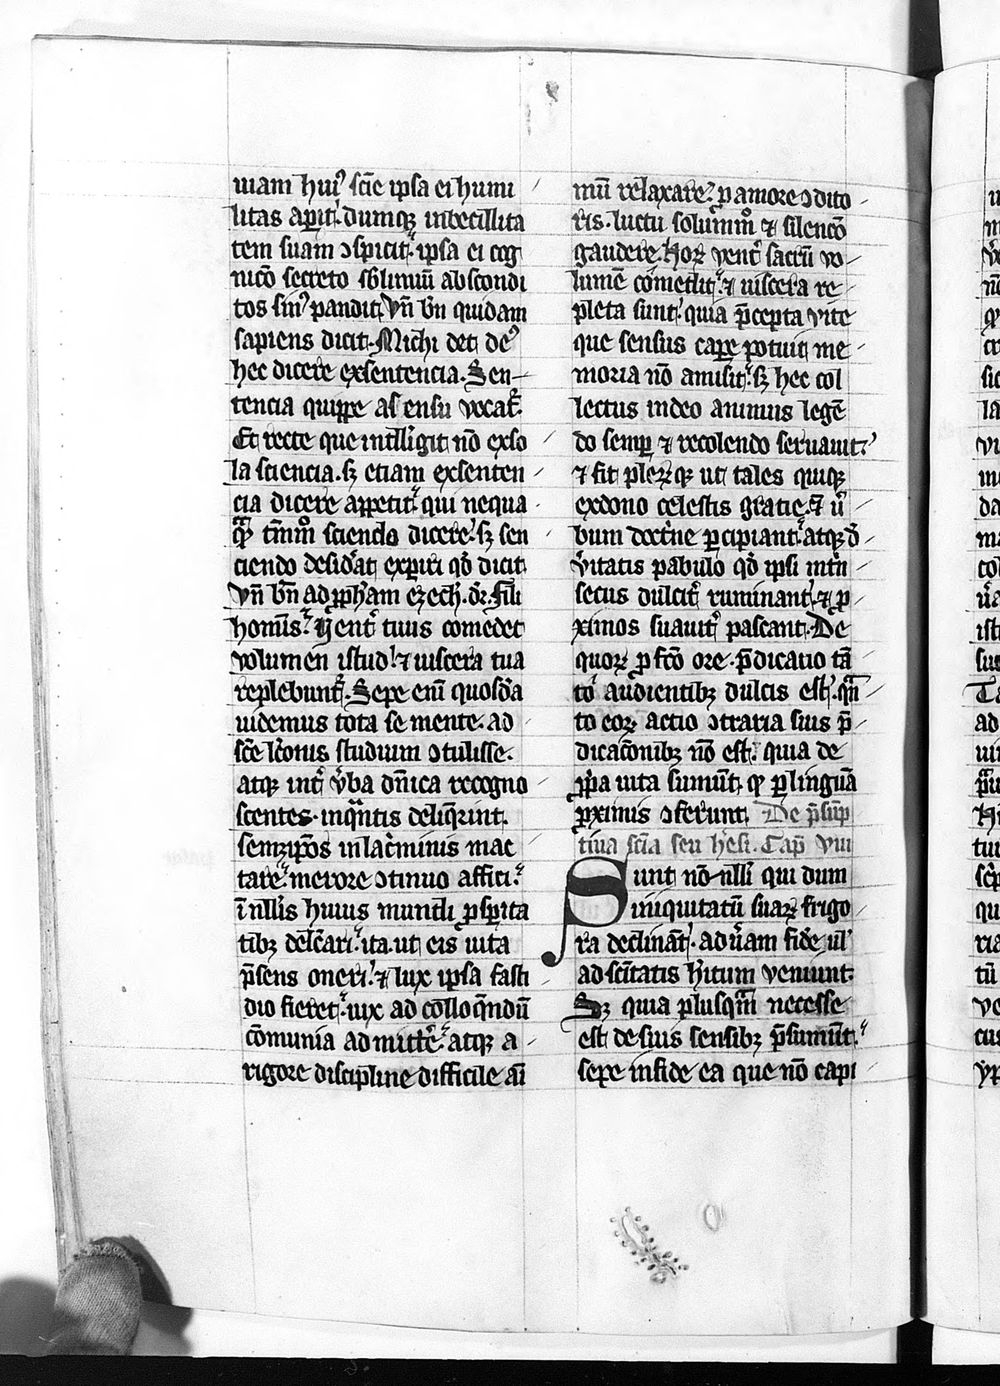 uiam huiꝰ scīe ipsa ei humi
litas aperit. dumqꝫ inbecillita
tem suam ꝯspicit. ipsa ei cog
nico secreto sblimiū abscondi
tos sinꝰ pandit. Vn̄ bn̄ quidam
sapiens dicit. Michi det deꝰ
hec dicere exsentencia. Sen
tencia quippe a sensu vocat᷑.
Et recte que intelligit nō exso
la sciencia. sꝫ etiam exsenten
cia dicere appetit. qui nequa
qᷓꝫ tm̄mͦ sciendo dicere. sꝫ sen
ciendo desid̕at experiri qd̕ dicit.
Vn̄ bn̄ ad ꝓph̄am ezech. dr̄. Fili
hom̄is. Vent̕ tuus comedet
volumen istud. et uiscera tua
replebunt᷑. Sepe eni quosd̄a
uidemus tota se mente. ad
sc̄e lc̄onis studium ꝯtulisse.
atqꝫ int̕ v̕ba dn̄ica recogno
scentes. inqᷓntis deliq̕rint.
semꝫip̄os inlac̕minis mac
tare. merore ꝯtinuo affici.
ī nll̕is huius mundi ꝓsp̕ita
tibꝫ delc̄ari. ita ut eis uita
p̄sens oneri. et lux ipsa fasti
dio fieret. uix ad colloq̄ndū
cōmunia admitte᷑. atqꝫ a
rigore discipline difficile aī
mū relaxare. ꝑ amore ꝯdito
ris. luctu solūmͦ et silencō
gaudere. Hoꝝ vent̕ sacrū vo
lumē comedit. et uiscera re
pleta sunt. quia p̄cepta vite
que sensus caꝑe potuit me
moria nō amisit. sꝫ hec col
lectus indeo animus legē
do semꝑ et recolendo seruauit.
et fit pleꝝqꝫ ut tales quiqꝫ
exdono celestis gratie. v̕
bum doct̕ne ꝑcipiant. atqꝫ d̕
v̕itatis pabulo qd̕ ipsi int̕n
secus dulcit̕ ruminant. et ꝓ
ximos suauit̕ pascant. De
quoꝝ ꝑfc̄o ore. p̄dicatio tā
to audientibꝫ dulcis est. qn̄
to eoꝝ actio ꝯtraria suis p̄
dicacōnibꝫ nō est. quia de
ꝓpa uita sumūt. qd ꝑ linguā
ꝓximis ꝯferunt. De p̄sūp
tiua scīa seu h̕esi. Cap̄ VIII
Sunt nō nlli qui dum
iniquitatū suaꝝ frigo
ra declināt. ad u̕am fidē ul̕
ad sc̄itatis h̕itum veniunt.
Sꝫ quia plusqᷓm necesse
est de suis sensibꝫ p̄sumūt.
sepe infide ea que nō capi